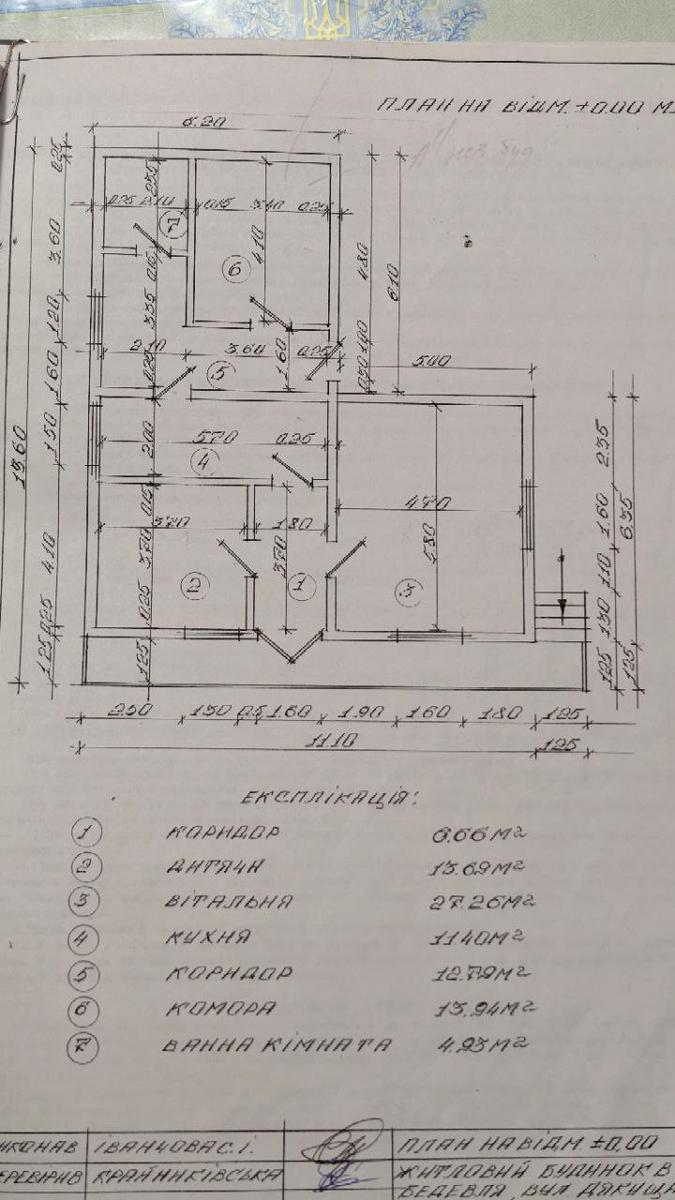 ПЛАН НА ВІДМ. ±0.00 М
6.20
0.25
3.60
1.20
1.60
1.50
4.10
0.25
1.25
13.60
2.35
0.25 2.10 0.15 3.40 0.25
7
6
4.10
4.80
6.10
0.15
3.35
2.10 3.60 0.25
1.60
1.00
0.30
5.00
5
0.25
5.70 0.25
2.00
4
4.70
5.80
0.15
3.70 1.80
3.70
3.70
2
1
3
0.25
1.25
2.35
1.60
1.10
1.30
1.25
6.35
1.25
2.50 1.50 0.5 1.60 1.90 1.60 1.80 1.25
11.10 1.25
ЕКСПЛІКАЦІЯ:
1 КОРИДОР 6.66 М²
2 ДИТЯЧИ 13.69 М²
3 ВІТАЛЬНЯ 27.26 М²
4 КУХНЯ 11.40 М²
5 КОРИДОР 12.79 М²
6 КОМОРА 13.94 М²
7 ВАННА КІМНАТА 4.93 М²
ИКОНАВ ІВАНЧОВА С.І. ПЛАН НА ВІДМ. ±0.00
ЕРЕВІРИВ КРАЙНИКІВСЬКА ЖИТЛОВИЙ БУДИНОК В
БЕДЕВЛЯ ВУЛ ДЯКИЦА